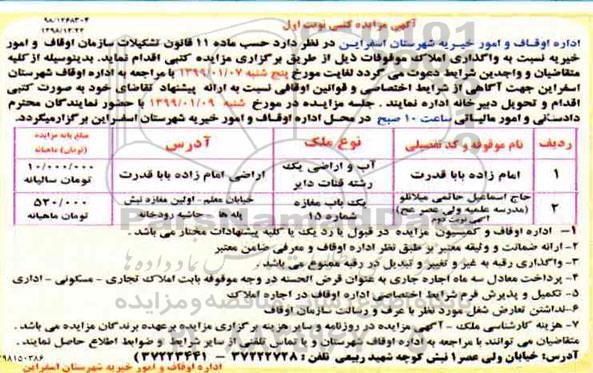 آگهی مزایده کتبی نوبت اول
۹۸/۱۲۶۸۳۰۴
۱۳۹۸/۱۲/۲۲
اداره اوقاف و امور خیریه شهرستان اسفراین در نظر دارد حسب ماده ۱۱ قانون تشکیلات سازمان اوقاف و امور
خیریه نسبت به واگذاری املاک موقوفات ذیل از طریق برگزاری مزایده کتبی اقدام نماید. بدینوسیله ازکلیه
متقاضیان و واجدین شرایط دعوت می گردد لغایت مورخ پنج شنبه ۱۳۹۹/۰۱/۰۷ با مراجعه به اداره اوقاف شهرستان
اسفراین جهت آگاهی از شرایط اختصاصی و قوانین اوقافی نسبت به ارائه پیشنهاد تقاضای خود به صورت کتبی
اقدام و تحویل دبیرخانه اداره نمایند . جلسه مزایده در مورخ شنبه ۱۳۹۹/۰۱/۰۹ با حضور نمایندگان محترم
دادستانی و امور مالیاتی ساعت ۱۰ صبح در محل اداره اوقاف و امور خیریه شهرستان اسفراین برگزارمیگردد.
ردیف نام موقوفه و کد تفصیلی نوع ملک آدرس مبلغ پایه مزایده (تومان) ماهیانه
۱ امام زاده بابا قدرت آب و اراضی یک رشته قنات دایر اراضی امام زاده بابا قدرت ۱۰/۰۰۰/۰۰۰ تومان سالیانه
۲ حاج اسماعیل حاتمی میلانلو (مدرسه علمیه ولی عصر عج) آگهی نوبت دوم یک باب مغازه شماره ۱۵ خیابان معلم - اولین مغازه نبش پله ها - حاشیه رودخانه ۵۳۰/۰۰۰ تومان ماهیانه
۱- اداره اوقاف و کمیسیون مزایده در قبول یا رد یک یا کلیه پیشنهادات مختار می باشد .
۲- ارائه ضمانت و وثیقه معتبر بر طبق نظر اداره اوقاف و معرفی ضامن معتبر
۳- واگذاری رقبه به غیر و تغییر و تبدیل در رقبه ممنوع می باشد.
۴- پرداخت معادل سه ماه اجاره جاری به عنوان قرض الحسنه در وجه موقوفه بابت املاک تجاری - مسکونی - اداری
۵- تکمیل و پذیرش فرم شرایط اختصاصی اداره اوقاف در اجاره املاک
۶- نداشتن تعارض شغل مورد نظر با عرف و رسالت سازمان اوقاف
۷- هزینه کارشناسی ملک - آگهی مزایده در روزنامه و سایر هزینه برگزاری مزایده برعهده برندگان مزایده می باشد .
متقاضیان می توانند با مراجعه به اداره اوقاف شهرستان و یا تماس تلفنی از سایر شرایط و ضوابط اطلاع حاصل نمایند .
آدرس: خیابان ولی عصر۱ نبش کوچه شهید ربیعی تلفن : ۳۷۲۲۲۷۲۸ - ۳۷۲۲۳۴۴۱
اداره اوقاف و امور خیریه شهرستان اسفراین